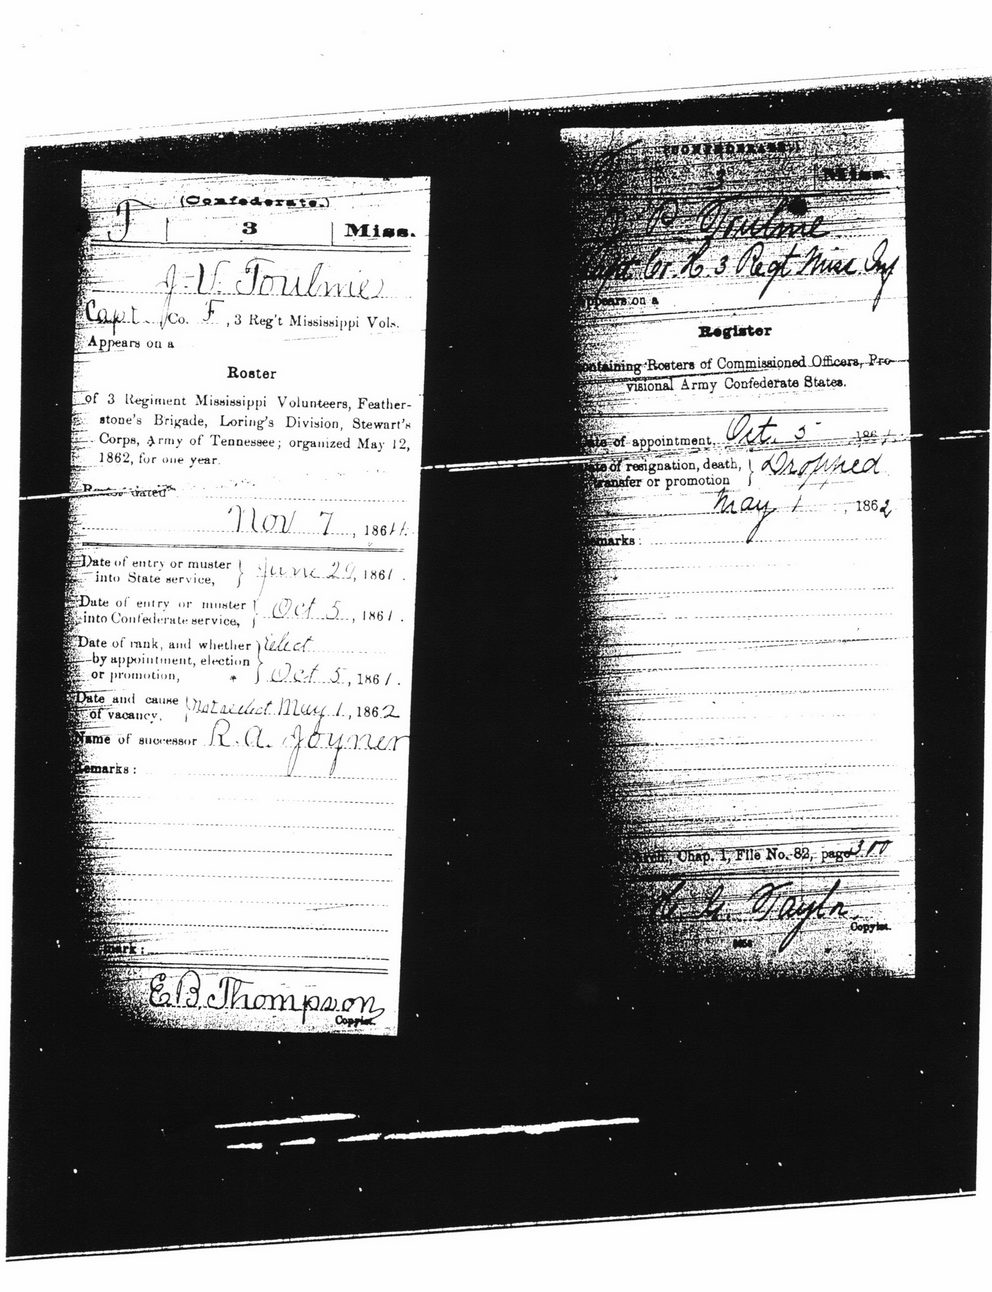 (Confederate.)
T 3 Miss.
J. V. Toulmie
Capt., Co. F, 3 Reg't Mississippi Vols.
Appears on a
Roster
of 3 Regiment Mississippi Volunteers, Feather-
stone's Brigade, Loring's Division, Stewart's
Corps, Army of Tennessee; organized May 12,
1862, for one year.
dated
Nov 7, 186
Date of entry or muster
into State service, June 29, 1861.
Date of entry or muster
into Confederate service, Oct 5, 1861.
Date of rank, and whether Elect
by appointment, election
or promotion, * Oct 5, 1861.
Date and cause
of vacancy, May 1, 1862
Name of successor R. A. Joyner
emarks:
mark:
E B Thompson
Copyist.
(CONFEDERATE.)
3 Miss.
P. Toulmie
Co. H. 3 Regt Miss Inf
ppears on a
Register
ontaining Rosters of Commissioned Officers, Pro-
visional Army Confederate States.
ate of appointment, Oct. 5 186
ate of resignation, death,
ransfer or promotion Dropped
May 1, 1862
emarks:
Arch., Chap. 1, File No. 82, page 300
G. Taylor
Copyist.